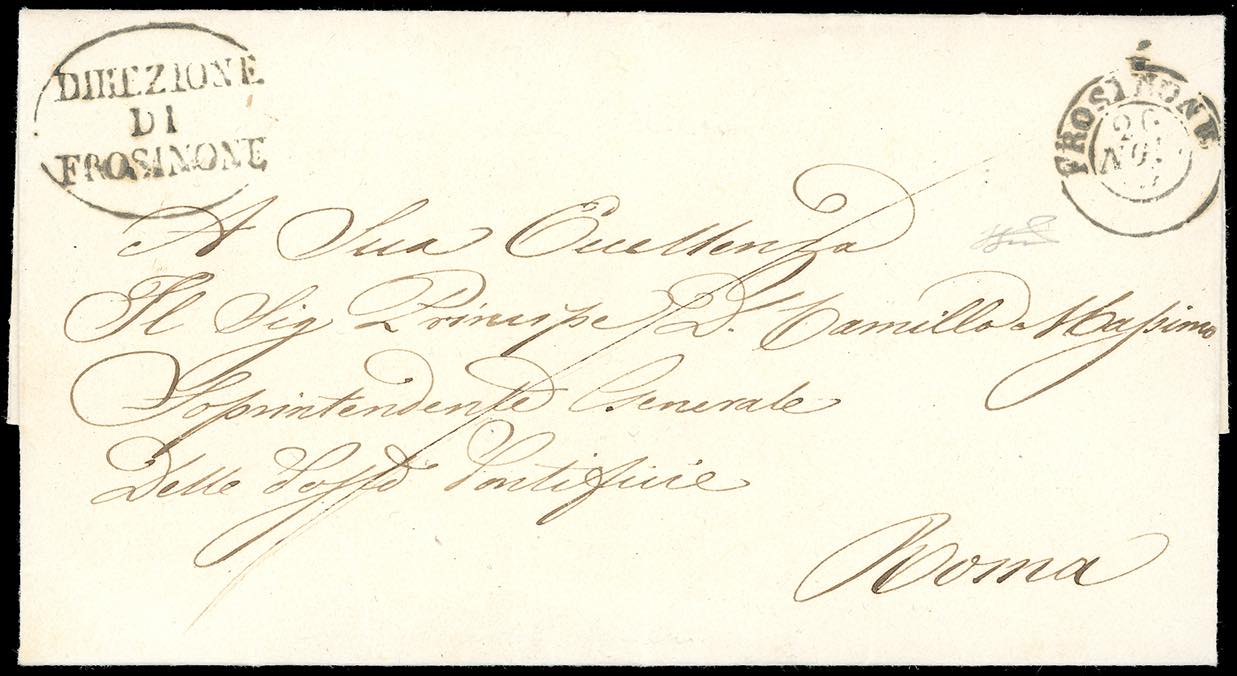 DIREZIONE
DI
FROSINONE
FROSINONE
NOV
A Sua Eccellenza
Il Sig Principe D. Camillo Massimo
Soprintendente Generale
Delle Poste Pontificie
Roma